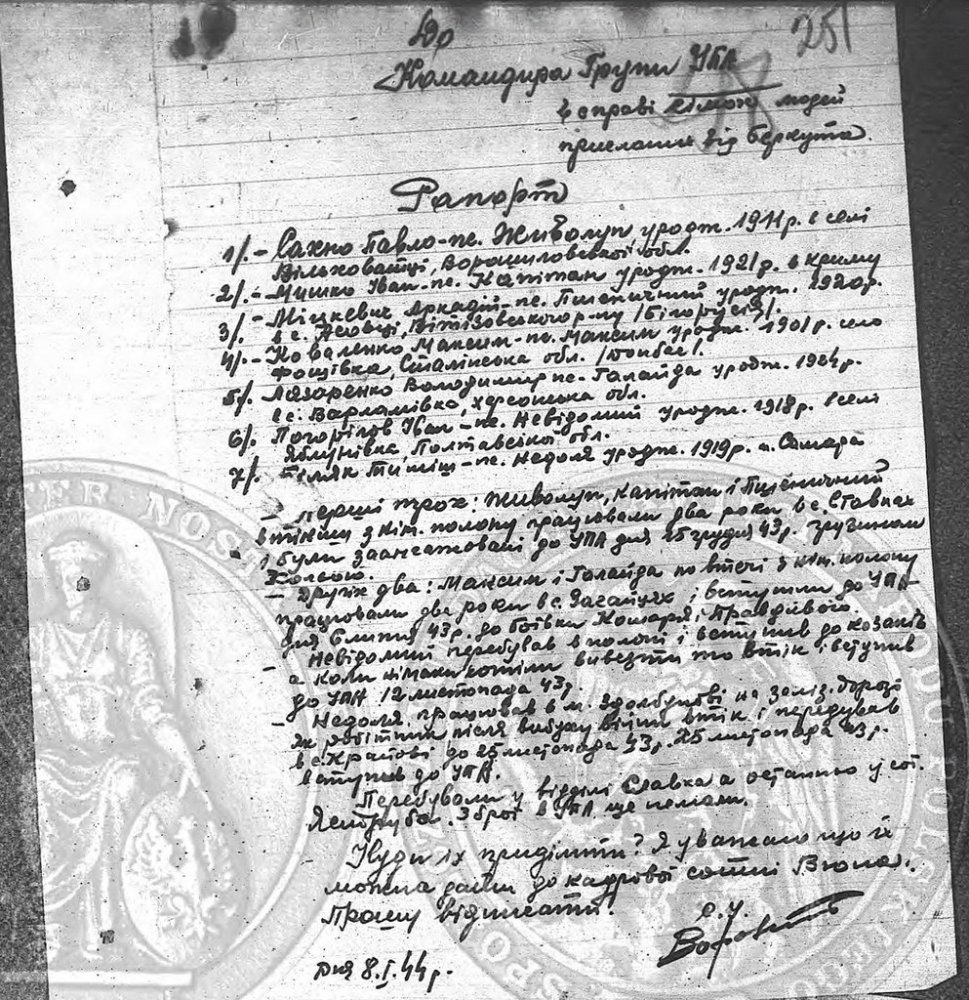 251
До
Командира Групи УПА
в справі сімох людей
присланих від Беркута.
Рапорт
1/.- Сахно Павло-пс. Живолуп, уродж. 1911 р. в селі
Вільховатці, Ворошиловської обл.
2/.- Мишко Іван-пс. Капітан уродж. 1921 р. в Криму
3/. - Міцкевич Аркадій-пс. Пшеничний уродж. 1920 р.
в с. р-ну /Білорусія/.
4/.- Коваленко Максим-пс. Максим уродж. 1901 р. село
Фощівка, Сталінська обл. /Донбас/.
5/. Лазаренко Володимир пс. Галайда уродж. 1904 р.
в с. Варламівка, Херсонська обл.
6/. Погорілов Іван-пс. Невідомий уродж. 1918 р. в селі
Яблунівка Полтавської обл.
7/. Тиміш-пс. Недоля уродж. 1919 р. м. Самара
- Перші трох: Живолуп, Капітан і Пшеничний
втікши з нім. полону працювали два роки в с. Ставках
і були заангажовані до УПА дня 25 грудня 43 р. зручником
- Других два: Максим і Галайда по втечі з нім. полону
працювали два роки в с. Загайцях і вступили до УПА
дня 6 липня 43 р. до боївки Комаря і Правдивого.
- Невідомий перебував в полоні і вступив до козаків
а коли німаки хотіли вивезти то втік і вступив
до УПА 12 листопада 43 р.
- Недоля. працював в м. Здолбунові на заліз. дорозі
як робітник після вибуху війни втік і перебував
в с. Краєві до 25 листопада 43 р. 25 листопада 43 р.
вступив до УПА.
Перебували у відділі Славка а останньо у сот.
Ясноруба. Зброї в УПА ще немали.
Куди їх приділити? Я уважаю що їх
можна дати до кадрової сотні Вюна.
Прошу відписати.
С. У.
Дня 8.I.44 р.